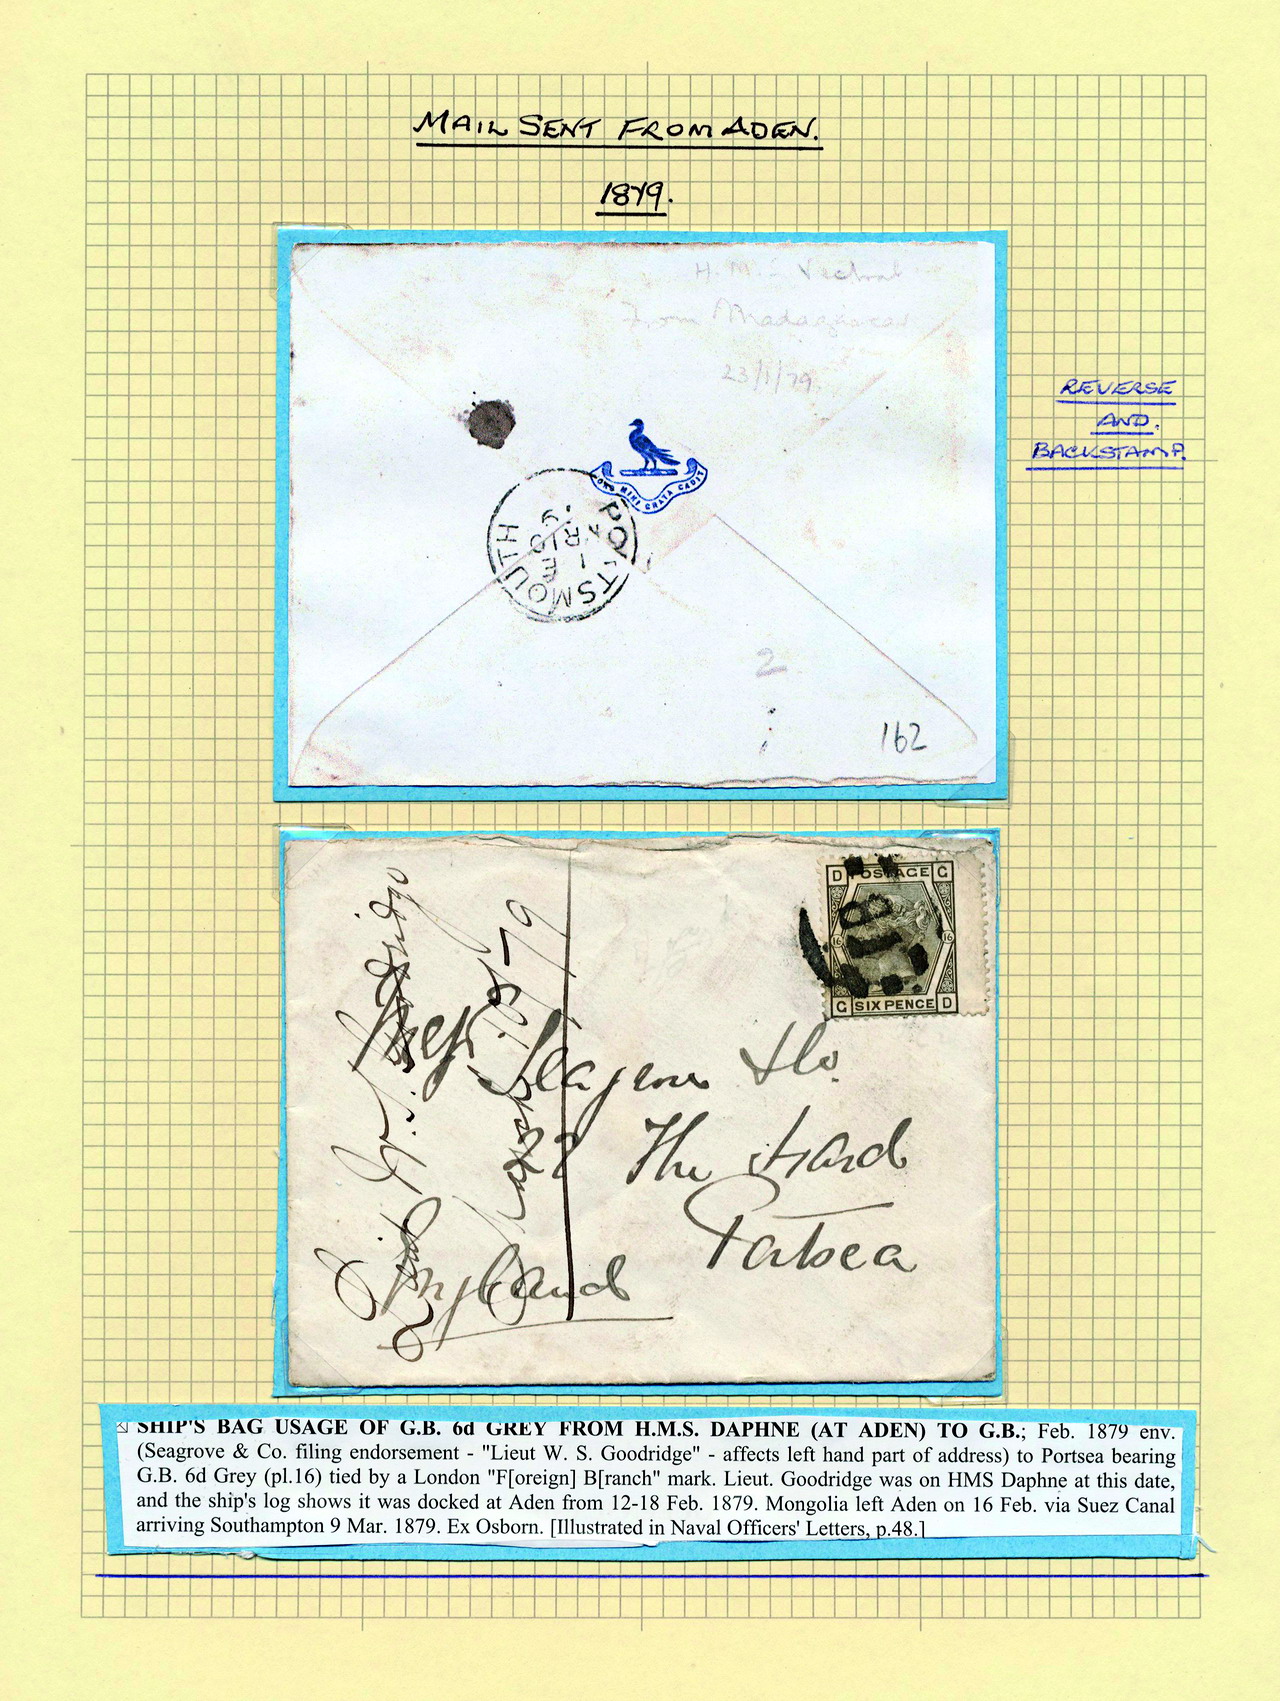 MAIL SENT FROM ADEN.
1879.
H.M.S
From Madagascar
23/1/79
REVERSE
AND.
BACKSTAMP.
MIHI GRATA CADIT
PORTSMOUTH
1 E
R10
9
2
162
D POSTAGE G
16 16
G SIX PENCE D
FB
Lieut W. S. Goodridge
10/3/79
Mess Seagrove & Co.
22 The Hard
Portsea
England
SHIP'S BAG USAGE OF G.B. 6d GREY FROM H.M.S. DAPHNE (AT ADEN) TO G.B.; Feb. 1879 env.
(Seagrove & Co. filing endorsement - "Lieut W. S. Goodridge" - affects left hand part of address) to Portsea bearing
G.B. 6d Grey (pl.16) tied by a London "F[oreign] B[ranch" mark. Lieut. Goodridge was on HMS Daphne at this date,
and the ship's log shows it was docked at Aden from 12-18 Feb. 1879. Mongolia left Aden on 16 Feb. via Suez Canal
arriving Southampton 9 Mar. 1879. Ex Osborn. [Illustrated in Naval Officers' Letters, p.48.]